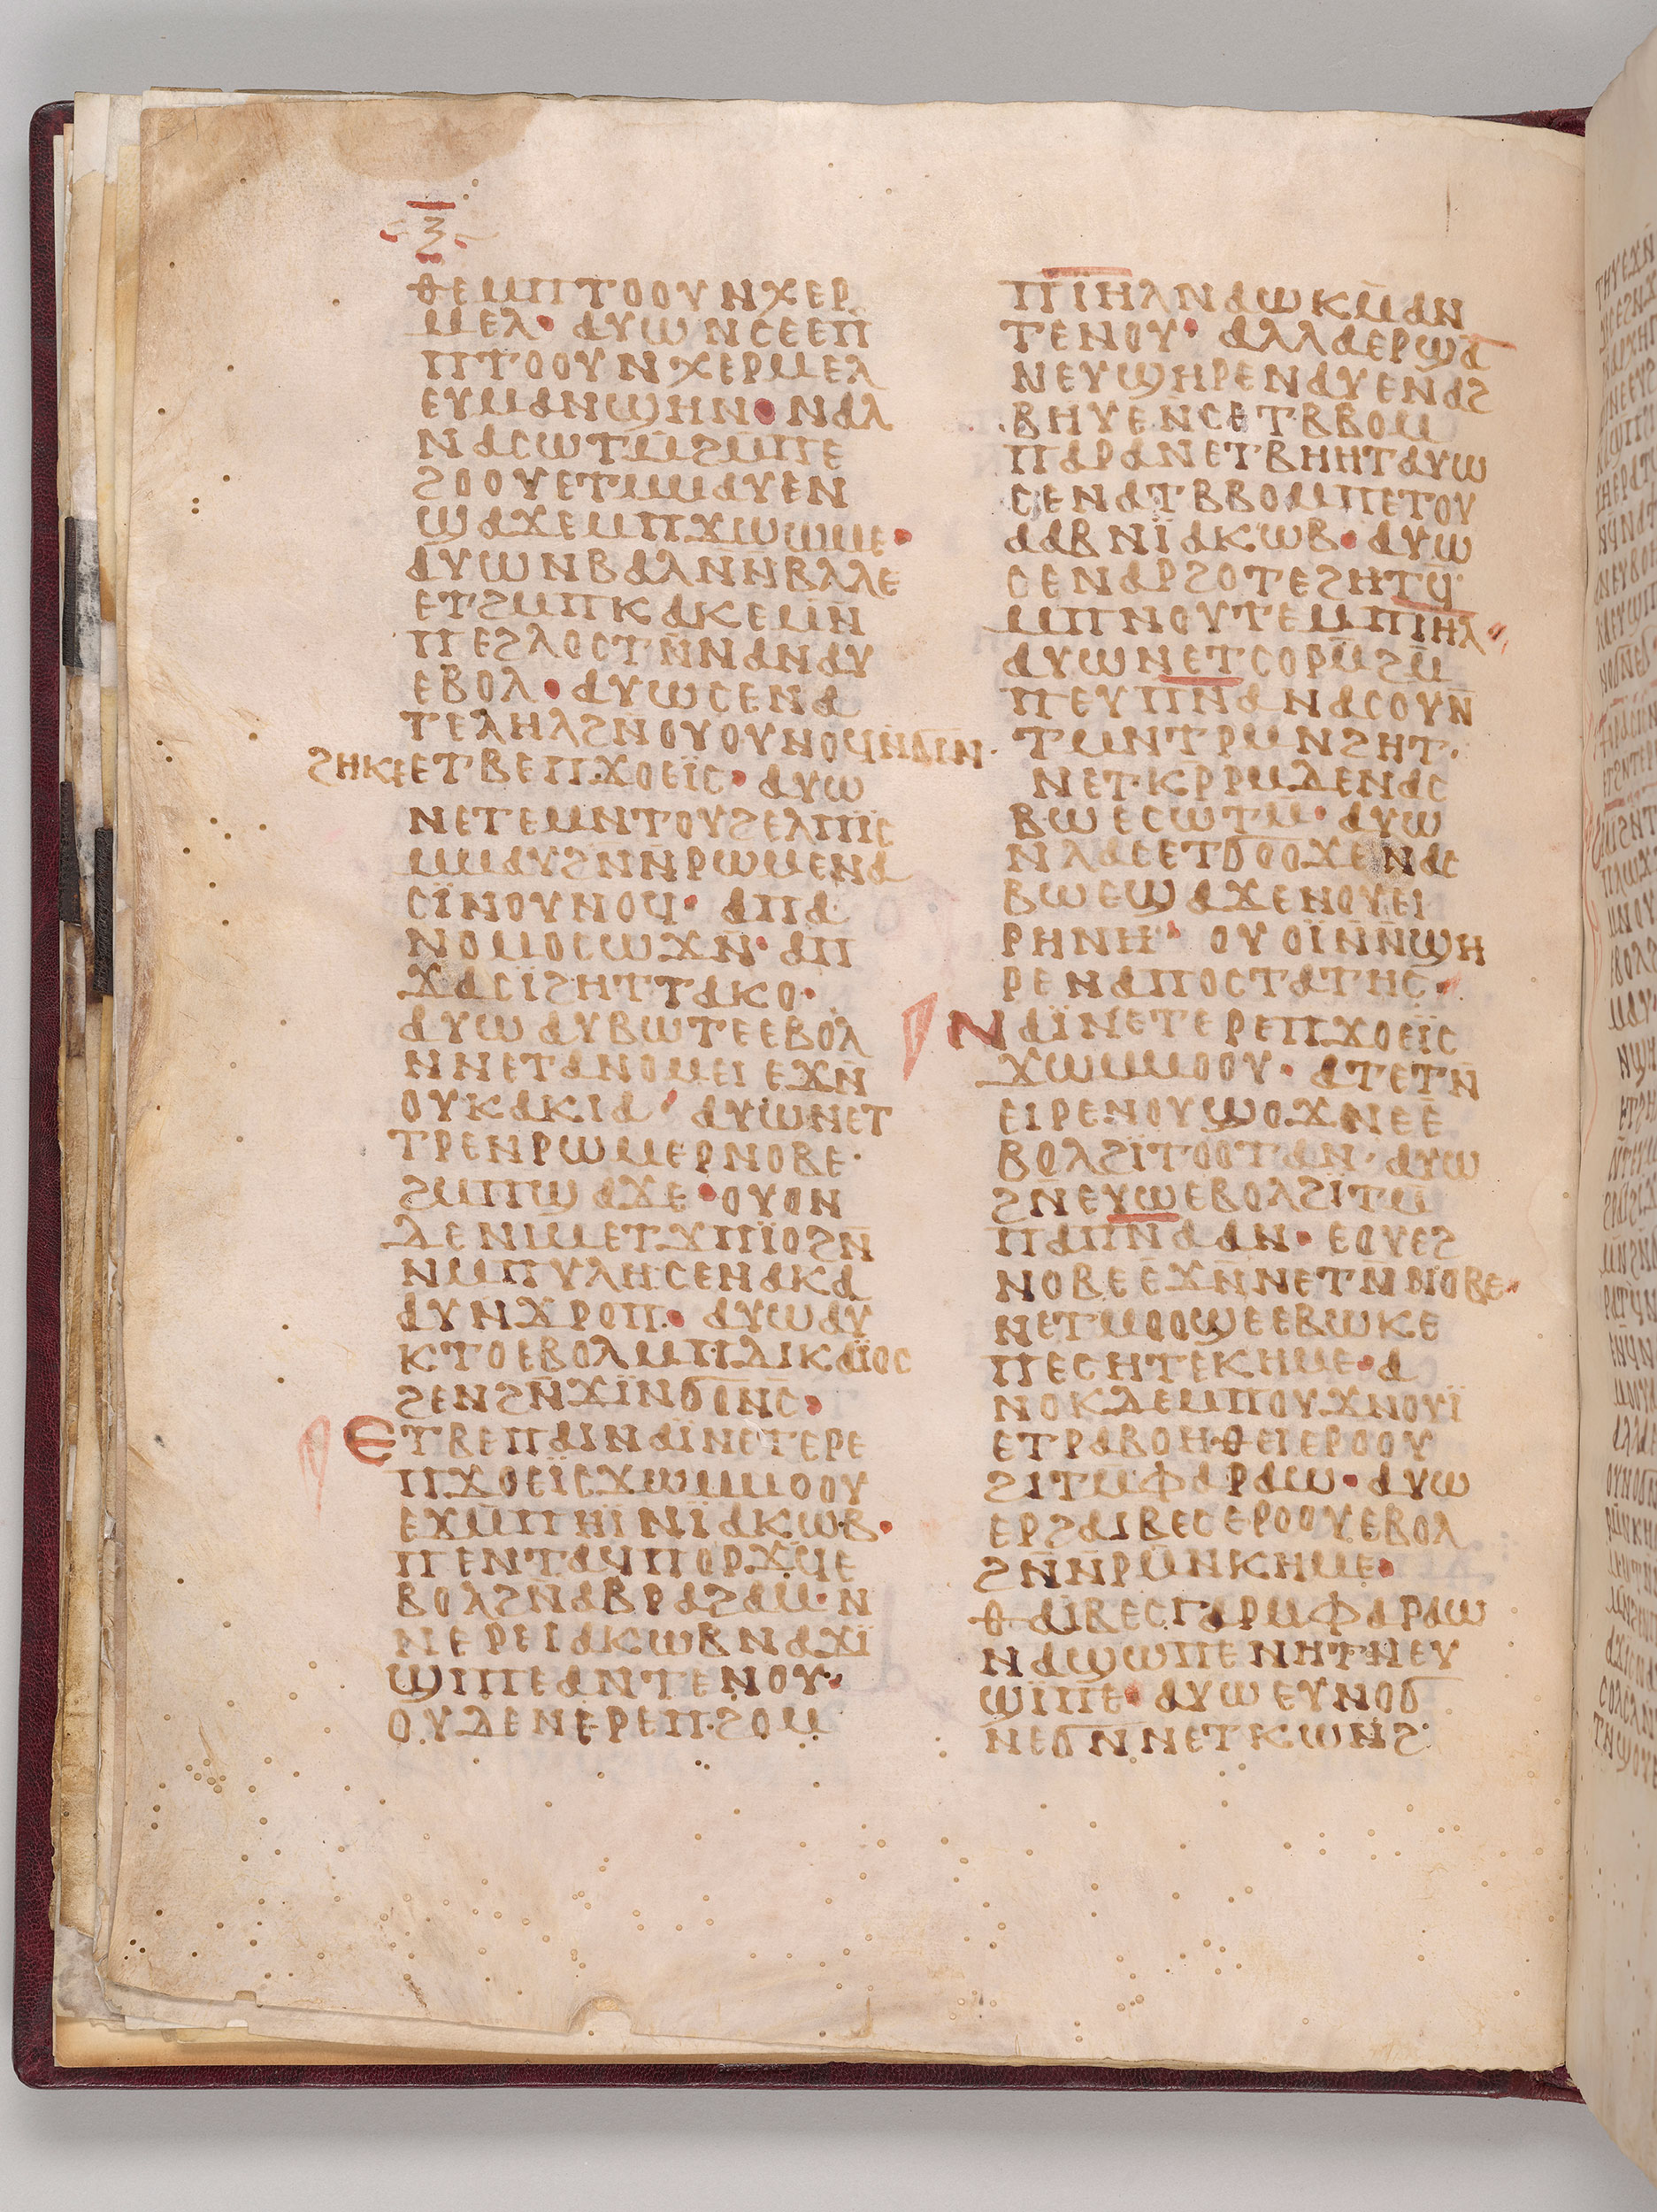 ⲍ
ⲑⲉⲙⲡⲧⲟⲟⲩⲛⲭⲉⲣ
ⲙⲉⲗ· ⲁⲩⲱⲛⲥⲉⲉⲡ̄
ⲡⲧⲟⲟⲩⲛⲭⲉⲣⲙⲉⲗ
ⲉⲩⲙⲁⲛϣⲏⲛ· ⲛⲁⲗ
ⲛⲁⲥⲱⲧⲙ̄ϩⲙⲡⲉ
ϩⲟⲟⲩⲉⲧⲙⲙⲁⲩⲉⲛ
ϣⲁϫⲉⲙⲡϫⲱⲱⲙⲉ·
ⲁⲩⲱⲛⲃⲁⲗⲛ̄ⲛⲃⲗⲗⲉ
ⲉⲧϩⲙⲡⲕⲁⲕⲉⲙⲛ̄
ⲡⲉϩⲗⲟⲥⲧⲛ̄ⲛⲁⲛⲁⲩ
ⲉⲃⲟⲗ· ⲁⲩⲱⲥⲉⲛⲁ
ⲧⲉⲗⲏⲗϩⲛⲟⲩⲟⲩⲛⲟϥⲛ̄ϭⲓⲛ·
ϩⲏⲕⲉⲉⲧⲃⲉⲡϫⲟⲉⲓ̈ⲥ· ⲁⲩⲱ
ⲛⲉⲧⲉⲙⲛⲧⲟⲩϩⲉⲗⲡⲓ̈ⲥ
ⲙⲙⲁⲩϩⲛ̄ⲛ̄ⲣⲱⲙⲉⲛⲁ
ⲥⲓ̈ⲛⲟⲩⲛⲟϥ· ⲁⲡⲁ
ⲛⲟⲙⲟⲥⲱϫⲛ̄· ⲁⲡ
ϫⲁⲥⲓϩⲏⲧⲧⲁⲕⲟ·
ⲁⲩⲱⲁⲩⲃⲱⲧⲉⲉⲃⲟⲗ
ⲛⲛⲉⲧⲁⲛⲟⲙⲉⲓ ⲉϫⲛ̄
ⲟⲩⲕⲁⲕⲓⲁ· ⲁⲩⲱⲛⲉⲧ
ⲧⲣⲉⲛⲣⲱⲙⲉⲣⲛⲟⲃⲉ·
ϩⲙⲡϣⲁϫⲉ· ⲟⲩⲟⲛ
ⲇⲉⲛⲓⲙⲉⲧϫⲡⲓ̈ⲟϩⲛ̄
ⲛⲙⲡⲩⲗⲏ·ⲥⲉⲛⲁⲕⲁ
ⲁⲩⲛϫⲣⲟⲡ· ⲁⲩⲱⲁⲩ
ⲕⲧⲟⲉⲃⲟⲗⲙⲡⲇⲓⲕⲁⲓ̈ⲟⲥ
ϩⲉⲛϩⲛ̄ϫⲓ̈ⲛϭⲟⲛ̄ⲥ·
ⲉⲧⲃⲉⲡⲁⲓⲛⲁⲓ̈ⲛⲉⲧⲉⲣⲉ
ⲡϫⲟⲉⲓ̈ⲥϫⲱⲙⲙⲟⲟⲩ
ⲉϫⲙ̄ⲡⲏⲓ̈ⲛⲓ̈ⲁⲕⲱⲃ·
ⲡⲉⲛⲧⲁϥⲡⲟⲣϫϥⲉ
ⲃⲟⲗϩⲛⲁⲃⲣⲁϩⲁⲙ·ⲛ
ⲛⲉⲣⲉⲓⲁⲕⲱⲃⲛⲁϫⲓ̈
ϣⲓⲡⲉⲁⲛⲧⲉⲛⲟⲩ·
ⲟⲩⲇⲉⲛⲉⲣⲉⲡϩⲟⲙ
ⲡⲓ̈ⲏⲗⲛⲁⲱⲕⲙ̄ⲁⲛ
ⲧⲉⲛⲟⲩ· ⲁⲗⲗⲁⲉⲣϣⲁ
ⲛⲉⲩϣⲏⲣⲉⲛⲁⲩⲉⲛⲁϩ
ⲃⲏⲩⲉⲛ̄ⲥⲉⲧⲃⲃⲟⲙ
ⲡⲁⲣⲁⲛⲉⲧⲃⲏⲏⲧⲁⲩⲱ
ⲥⲉⲛⲁⲧⲃⲃⲟⲙⲡⲉⲧⲟⲩ
ⲁⲁⲃⲛⲓ̈ⲁⲕⲱⲃ· ⲁⲩⲱ
ⲥⲉⲛⲁⲣϩⲟⲧⲉϩⲏⲧϥ̄
ⲙⲡⲛⲟⲩⲧⲉⲙⲡⲓⲏⲗ·
ⲁⲩⲱⲛⲉⲧⲥⲟⲣⲙ̄ϩⲙ̄
ⲡⲉⲩⲡⲛ̄ⲁⲛⲁⲥⲟⲩⲛ̄
ⲧⲙⲛⲧⲣⲙⲛϩⲏⲧ·
ⲛⲉⲧ·ⲕⲣⲣⲙⲇⲉⲛⲁⲥ
ⲃⲱⲉⲥⲱⲧⲙ̄· ⲁⲩⲱ
ⲛⲗⲁⲉⲉⲧϭⲟⲟϫⲉⲛⲁⲥ
ⲃⲱⲉϣⲁϫⲉⲛⲟⲩⲉⲓ
ⲣⲏⲛⲏ· ⲟⲩⲟⲓ̈ⲛⲛ̄ϣⲏ
ⲣⲉⲛⲁⲡⲟⲥⲧⲁⲧⲏⲥ·
ⲛⲁⲓ̈ⲛⲉⲧⲉⲣⲉⲡϫⲟⲉⲓ̈ⲥ
ϫⲱⲙⲙⲟⲟⲩ· ⲁⲧⲉⲧⲛ̄
ⲉⲓⲣⲉⲛⲟⲩϣⲟϫⲛⲉⲉ̄
ⲃⲟⲗϩⲓ̈ⲧⲟⲟⲧⲁⲛ· ⲁⲩⲱ
ϩⲛ̄ⲉⲩϣⲉⲃⲟⲗϩⲓ̈ⲧⲙ
ⲡⲁⲡⲛ̄ⲁⲁⲛ· ⲉⲟⲩⲉϩ
ⲛⲟⲃⲉⲉϫⲛ̄ⲛⲉⲧⲛ̄ⲛⲟⲃⲉ·
ⲛⲉⲧⲙⲟⲟϣⲉⲉⲃⲱⲕⲉ
ⲡⲉⲥⲏⲧⲉⲕⲏⲙⲉ· ⲁ
ⲛⲟⲕⲇⲉⲙⲡⲟⲩϫⲛⲟⲩⲓ̈
ⲉⲧⲣⲁⲃⲟⲏⲑⲉⲓⲉⲣⲟⲟⲩ
ϩⲓⲧⲙ̄ⲫⲁⲣⲁⲱ· ⲁⲩⲱ
ⲉⲣϩⲁⲓⲃⲉⲥⲉⲣⲟⲟⲩⲉⲃⲟⲗ
ϩⲛ̄ⲛ̄ⲣⲙ̄ⲛⲕⲏⲙⲉ·
ⲑⲁⲓ̈ⲃⲉⲥⲅⲁⲣⲙⲫⲁⲣⲁⲱ
ⲛⲁϣⲱⲡⲉⲛⲏⲧⲛⲉⲩ
ϣⲓ̈ⲡⲉ· ⲁⲩⲱⲉⲩⲛⲟϭ
ⲛⲉϭⲛⲛⲉⲧⲕⲱⲛ̄ϩ·